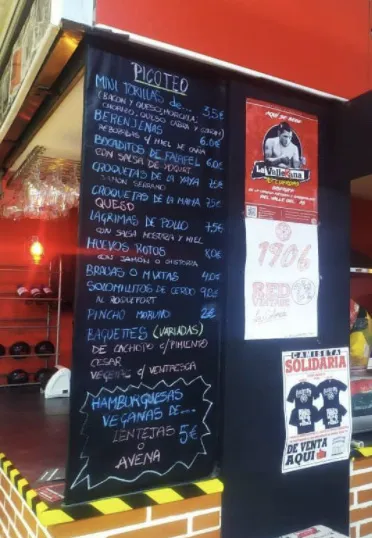 PICOTEO
MINI TORTILLAS de... 3,5€
(BACON Y QUESO, MORCILLA,
CHORIZO, QUESO CABRA Y
BERENJENAS 6.0€
REBOZADAS Y MIEL DE CAÑA
BOCADITOS DE FALAFEL 6,0€
CON SALSA DE YOGURT
CROQUETAS DE LA YAYA 7.5€
JAMÓN SERRANO
CROQUETAS DE LA MAMA 7.5€
QUESO
LAGRIMAS DE POLLO 7.5€
CON SALSA MOSTAZA Y MIEL
HUEVOS ROTOS 8,0€
CON JAMÓN O CHISTORRA
BRAVAS O MIXTAS 4,0€
SOLOMILLITOS DE CERDO 9,0€
AL ROQUEFORT
PINCHO MORUNO 2€
BAGUETTES (VARIADAS)
DE CACHOPO C/PIMIENTO
CESAR
VEGANAS Y VENTRESCA
HAMBURGUESAS
VEGANAS DE...
LENTEJAS 5€
O
AVENA
AQUÍ SE BEBE
La ValleKana
1906
RED
VINTAGE
La Colorada
CAMISETA
SOLIDARIA
DE VENTA
AQUÍ